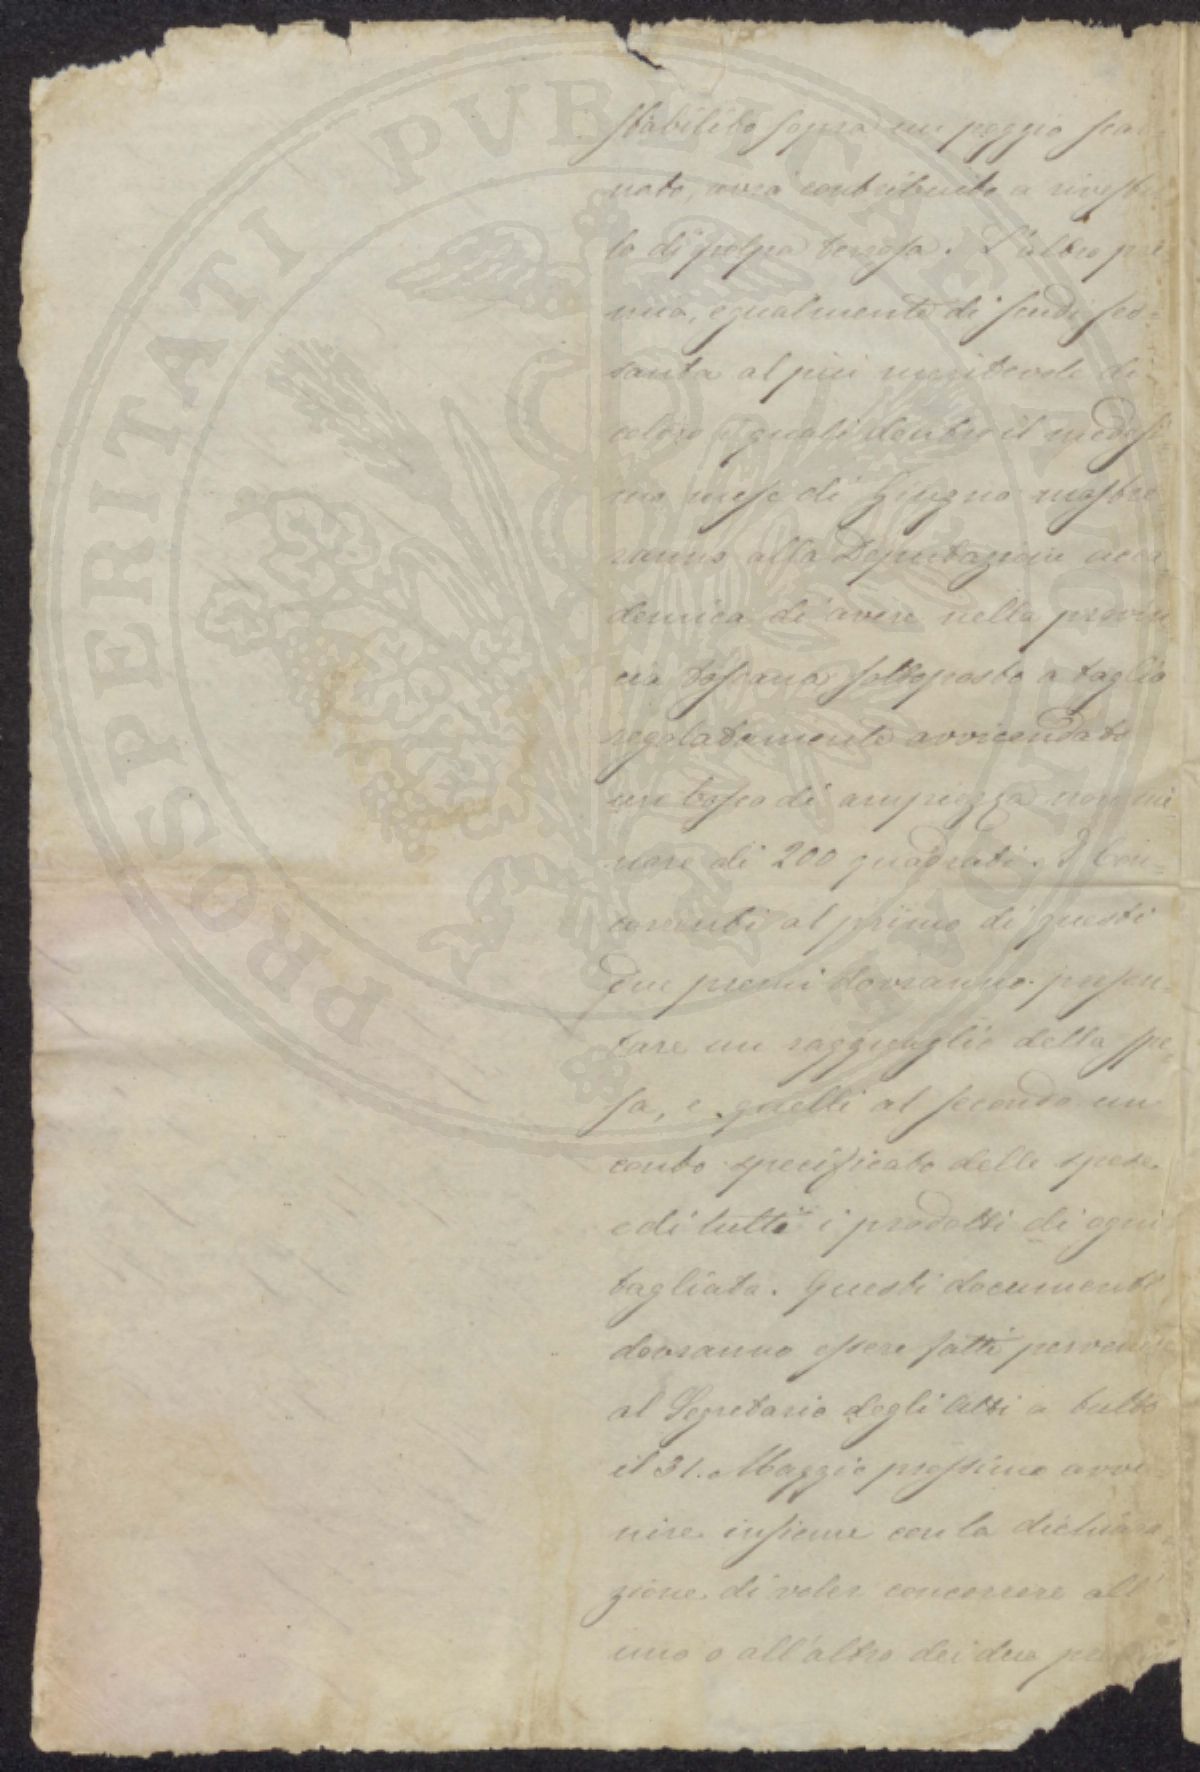 stabilito sopra un poggio scar-
nato, avrà contribuito a rivestir
lo di polpa terrosa. L'altro pre
mio, egualmente di scudi ses-
santa al più meritevole di
coloro i quali dentro il medesi-
mo mese di Giugno mostre
ranno alla Deputazione acca-
demica di avere nella provin
cia toscana sottoposto a taglio
regolatamente avvicendato
un bosco di ampiezza non mi
nore di 200 quadrati. I con-
correnti al primo di questi
due premi dovranno presen-
tare un ragguaglio della spe-
sa, e quelli al secondo un
conto specificato delle spese
e di tutti i prodotti di ogni
tagliata. Questi documenti
dovranno essere fatti pervenire
al Segretario degli Atti a tutto
il 31. Maggio prossimo avve-
nire insieme con la dichiara-
zione di voler concorrere all'
uno o all'altro dei due premi
PROSPERITATI PUBLICAE AUGENDAE